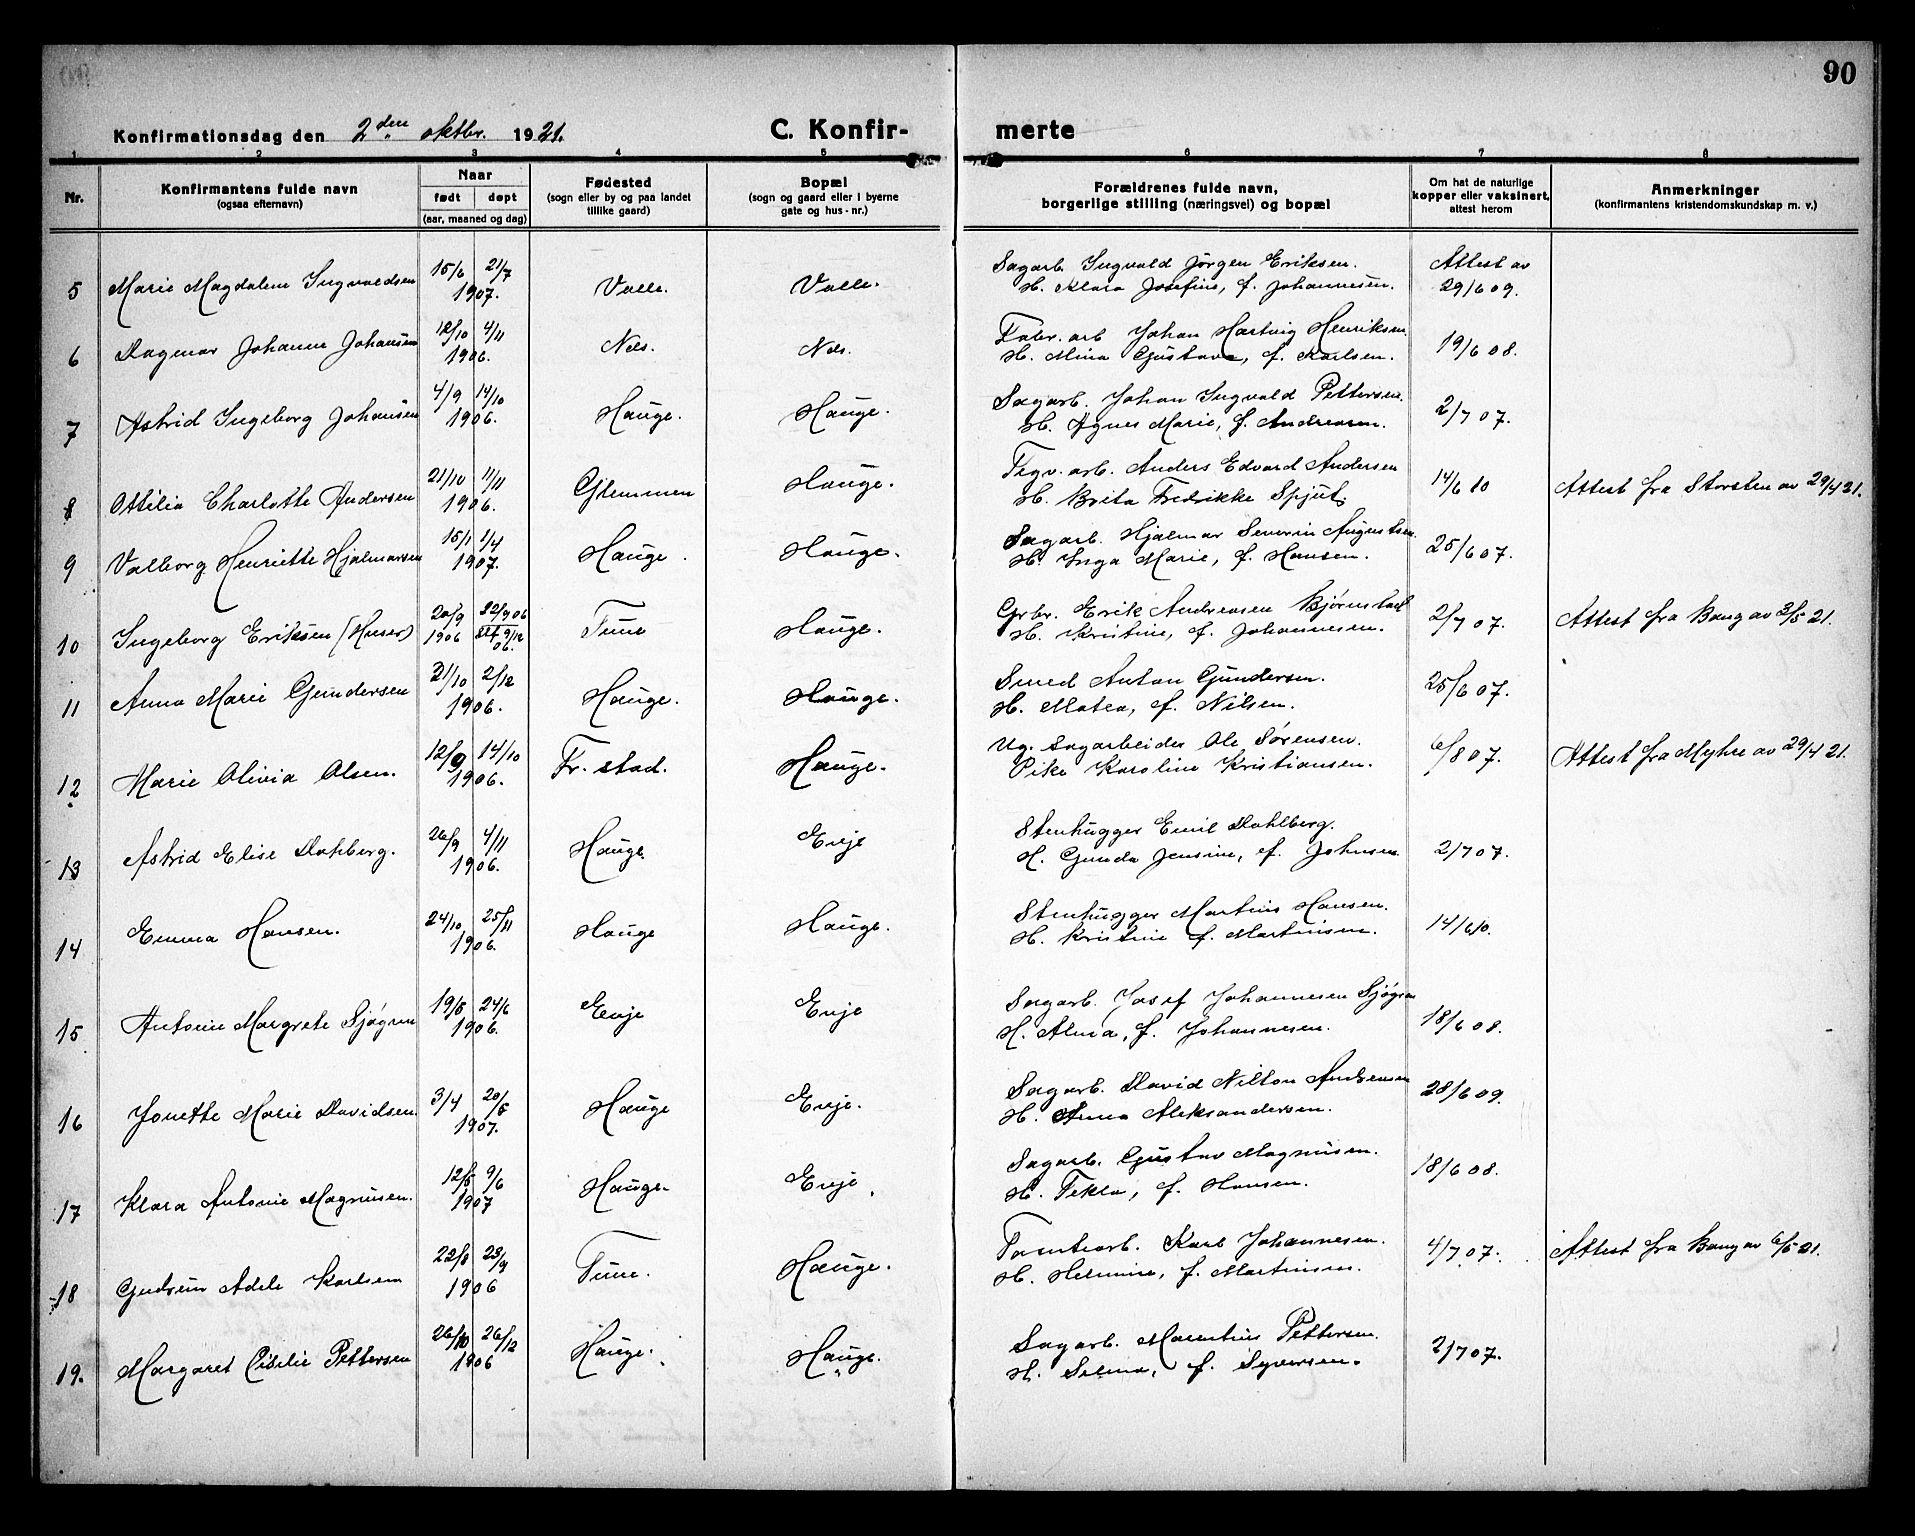 90
Konfirmationsdag den 2den oktbr. 1921.
C. Konfirmerte
1 2 3 4 5 6 7 8
Nr.
Konfirmantens fulde navn
(ogsaa efternavn)
Naar
født døpt
(aar, maaned og dag)
Fødested
(sogn eller by og paa landet
tillike gaard)
Bopæl
(sogn og gaard eller i byerne
gate og hus-nr.)
Forældrenes fulde navn,
borgerlige stilling (næringsvei) og bopæl
Om hat de naturlige
kopper eller vaksinert,
attest herom
Anmerkninger
(konfirmantens kristendomskundskap m. v.)
5 Marie Magdalene Ingvaldsen 15/6 21/7 1907. Valle. Valle. Sagarb. Ingvald Jørgen Eriksen. Attest av
H. Klara Josefine, f. Johannesen. 29/6 09.
6 Dagmar Johanne Johansen 12/10 4/11 1906. Nes. Nes. Fabr. arb Johan Hartvig Henriksen
H. Mina Gustava, f. Karlsen. 19/6 08.
7 Astrid Ingeborg Johansen 4/9 14/10 1906. Hauge. Hauge. Sagarb. Johan Ingvald Pettersen.
H. Agnes Marie, f. Andreasen. 2/7 07.
8 Ottilia Charlotte Andersen 21/10 11/11 1906. Glemmen Hauge. Tegv. arb. Anders Edvard Andersen
H. Brita Fredrikke Spjut. 14/6 10 Attest fra Storsten av 29/4 21.
9 Valborg Henriette Hjalmarsen 15/1 1/4 1907. Hauge. Hauge. Sagarb. Hjalmar Severin Augustsen.
H. Inga Marie, f. Hansen. 25/6 07.
10 Ingeborg Eriksen (Huser) 20/9 1906 22/9 06 9/12 06. Tune Hauge. Grbr. Erik Andreasen Bjørnstad
H. Kristine, f. Johannesen. 2/7 07. Attest fra Bang av 3/5 21.
11 Anna Marie Gundersen 31/10 2/12 1906. Hauge. Hauge. Smed Anton Gundersen.
H. Matea, f. Nilsen. 25/6 07.
12 Marie Olivia Olsen. 12/9 14/10 1906. Fr. stad. Hauge. Ug. Sagarbeider Ole Sørensen.
Pike Karoline Kristiansen. 6/8 07. Attest fra Myhre av 29/4 21.
13 Astrid Elise Dahlberg. 26/9 4/11 1906. Hauge. Evje Stenhugger Emil Dahlberg.
H. Gunda Jensine, f. Johnsen 2/7 07.
14 Emma Hansen. 24/10 25/11 1906. Hauge Hauge. Stenhugger Martius Hansen.
H. Kristine f. Martinsen. 14/6 10.
15 Antonie Margrete Sjøgren 19/5 24/6 1906. Evje Evje Sagarb. Josef Johannesen Sjøgren
H. Alma, f. Johannesen. 18/6 08.
16 Jonette Marie Davidsen. 3/4 20/5 1907. Hauge Evje. Sagarb. David Nilton Andersen
H. Anna Aleksandersen. 28/6 09.
17 Klara Antonie Magnusen. 12/5 9/6 1907 Hauge. Evje Sagarb. Gustav Magnusen.
H. Tekla, f. Hansen. 18/6 08.
18 Gudrun Adele Karlsen 22/8 23/9 1906 Tune. Hauge. Tomtearb. Karl Johannesen.
H. Helmine, f. Martinsen. 4/7 07. Attest fra Bang av 6/5 21.
19. Margaret Cisilie Pettersen 26/10 26/12 1906 Hauge. Hauge. Sagarb. Marentius Pettersen.
H. Selma, f. Syversen. 2/7 07.